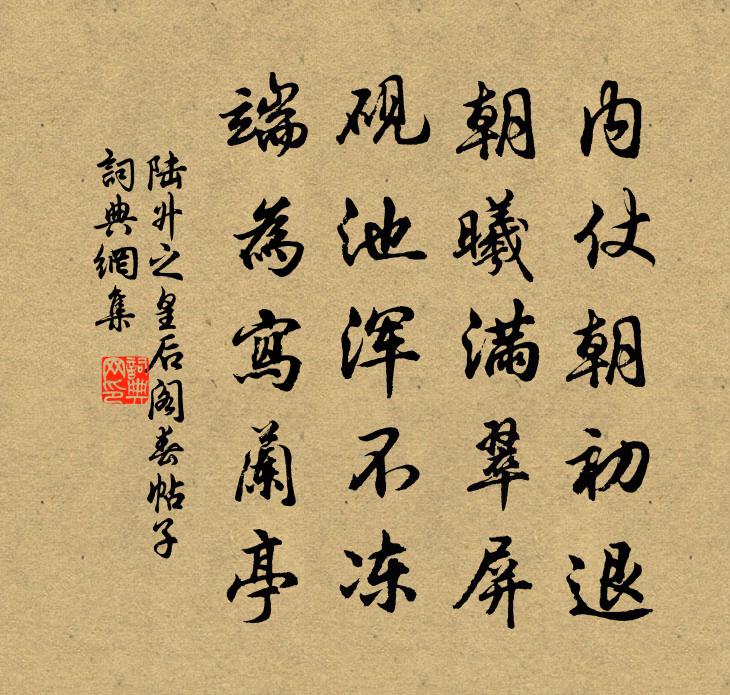 内仗朝初退
朝曦满翠屏
砚池浑不冻
端為寫蘭亭
陆升之皇后阁春帖子
詞典網集
詞典网印